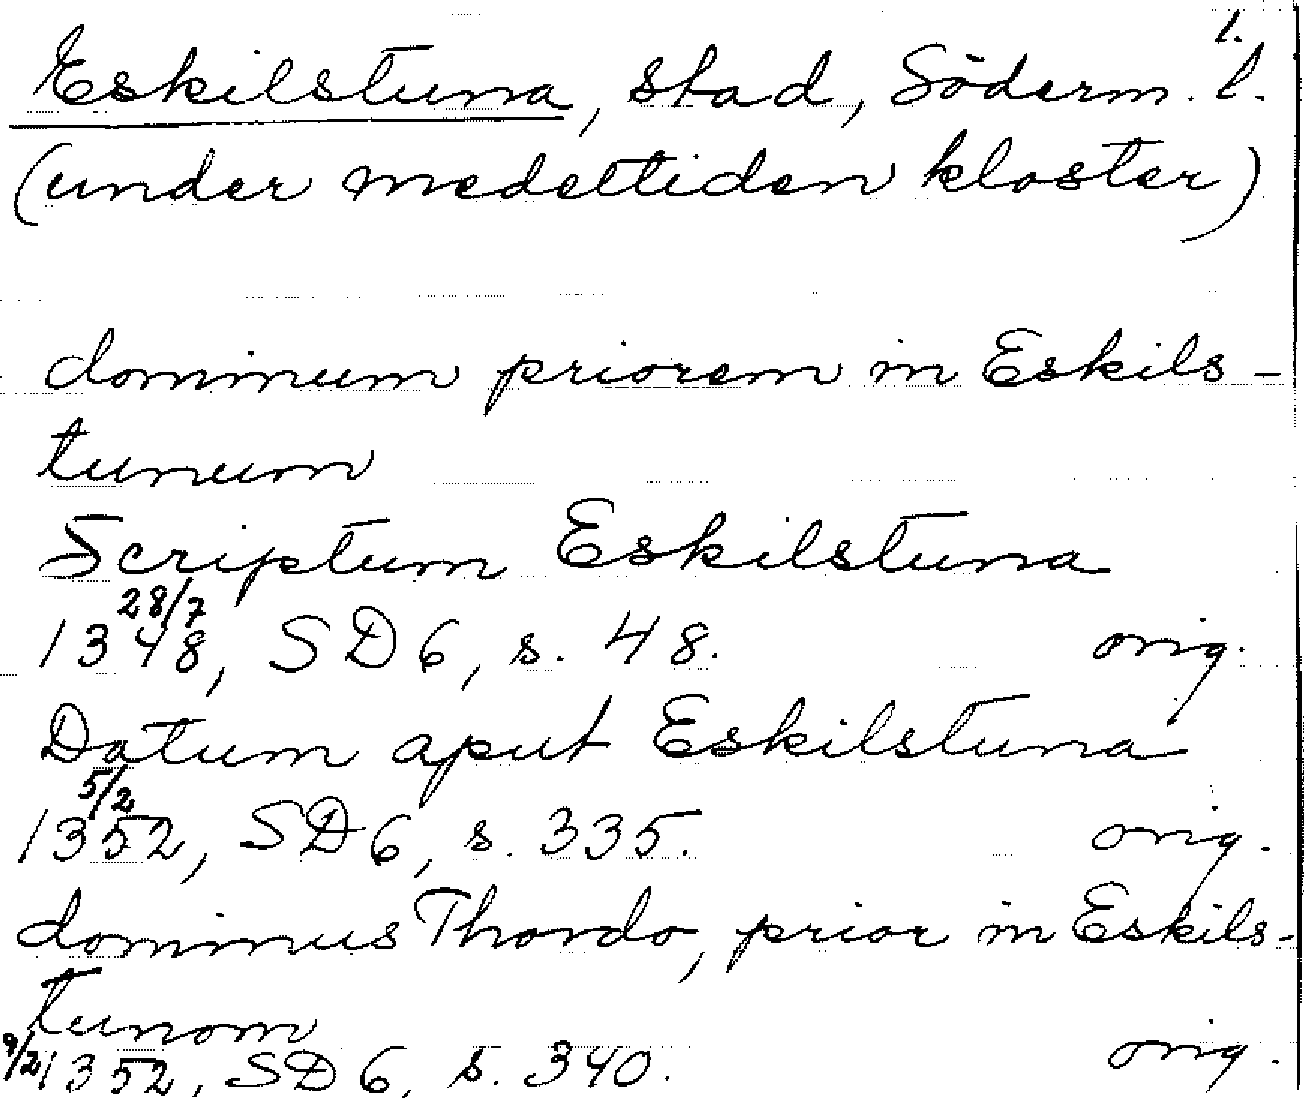 1.
Eskilstuna, stad, Söderm. l.
(under medeltiden kloster)
dominum priorem in Eskils-
tunum
Scriptum Eskilstuna
28/7
1348, SD 6, s. 48. orig.
Datum aput Eskilstuna
5/2
1352, SD 6, s. 335. orig.
dominus Thordo, prior in Eskils-
tunom
9/2 1352, SD 6, s. 340. orig.